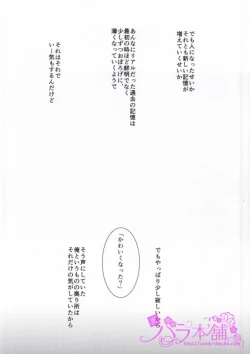 でも人になったせいか
それとも新しい記憶が
増えていくせいか
あんなにリアルだった過去の記憶は
最初の時ほど鮮明でなく
少しずつおぼろげに、
薄くなっていくようで
それはそれで
いー気もするんだけど
でもやっぱり少し寂しいから
「かわいくなった?」
そう声にしていた
俺というものの拠り所は
それだけの気がしていたから
本舗